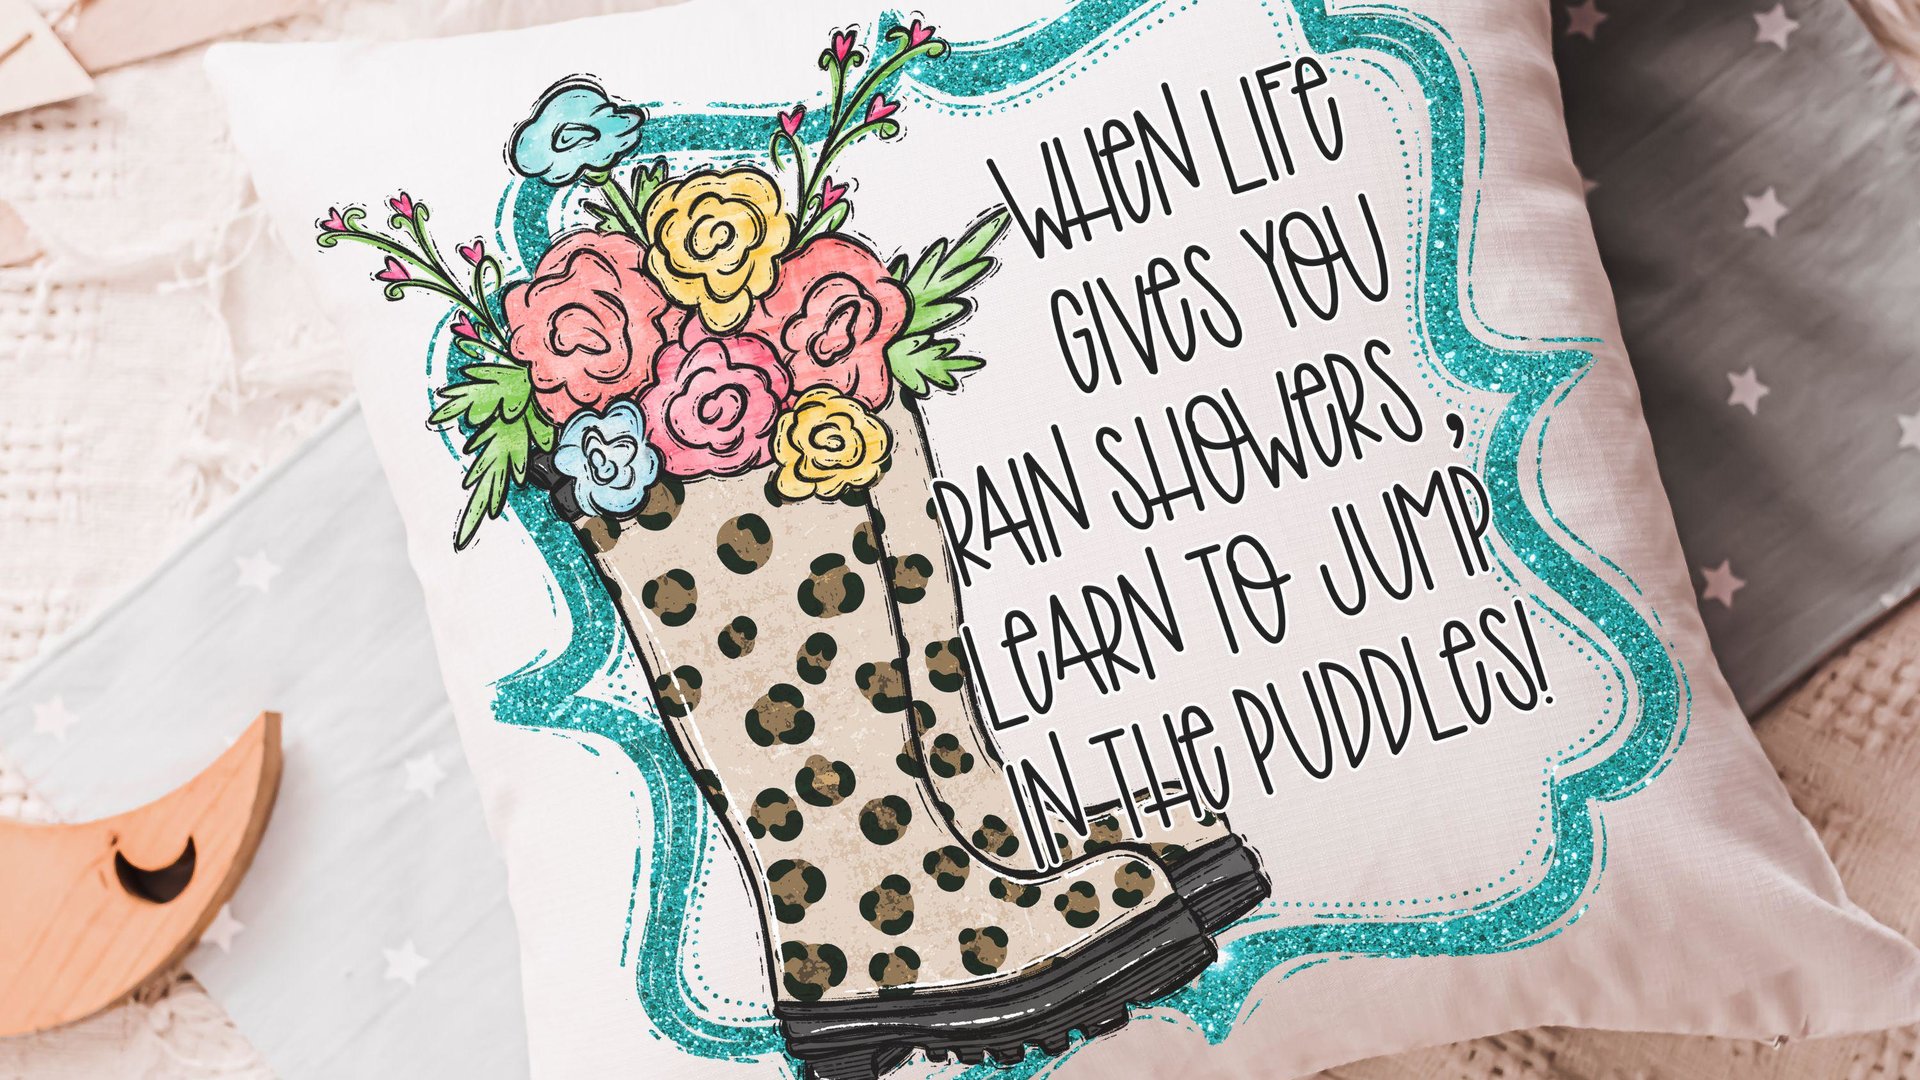 WHEN LIFE
GIVES YOU
RAIN SHOWERS,
LEARN TO JUMP
IN THE PUDDLES!